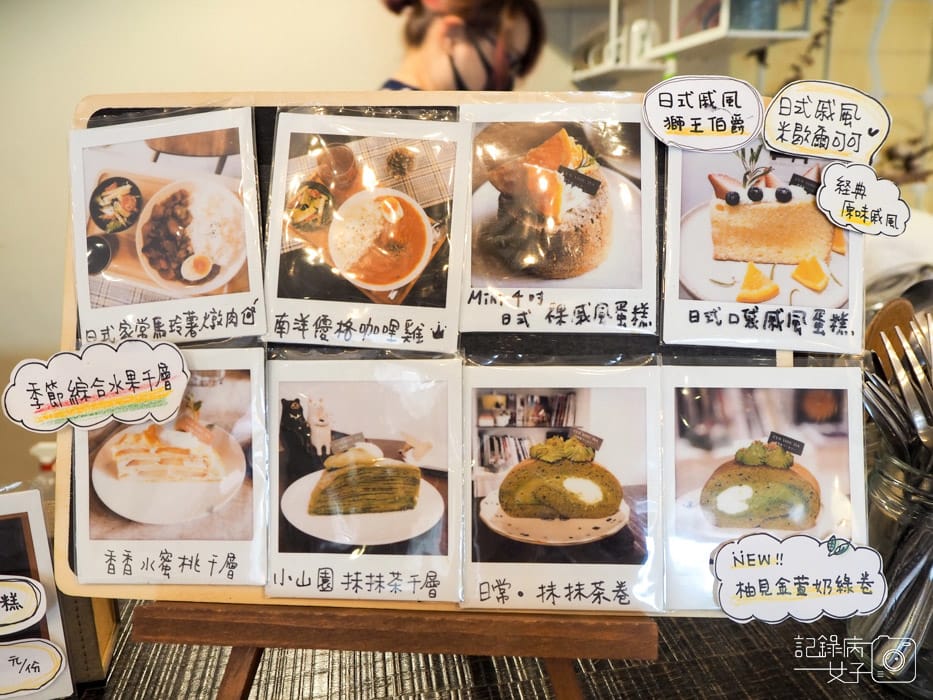 日式戚風
獅王伯爵
日式戚風
米歇爾可可
経典
原味戚風
日式家常馬玲薯燉肉
南洋優格咖哩雞
Mini 4吋
日式 裸戚風蛋糕
日式口袋戚風蛋糕
季節綜合水果千層
香香水蜜桃千層
小山園 抹抹茶千層
日常。抹抹茶卷
NEW!!
柚見金萱奶綠卷
糕
元/份
記錄病
女子